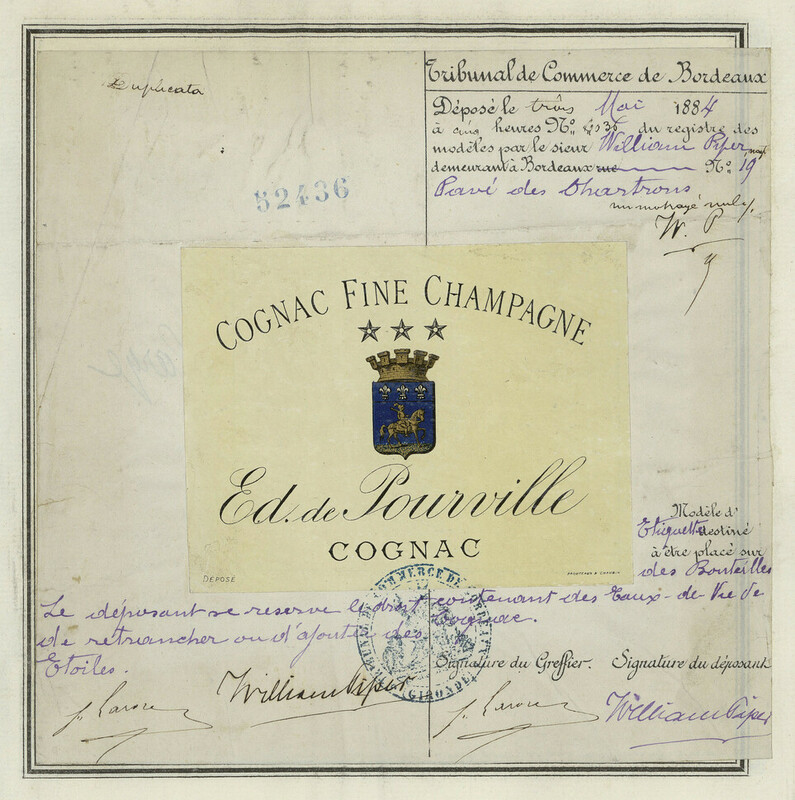 Duplicata
52436
Tribunal de Commerce de Bordeaux
Déposé le trois Mai 1884
à cinq heures No. du registre des
modèles par le sieur William Piper
demeurant à Bordeaux rue No. 19
Pavé des Chartrons
W. P
COGNAC FINE CHAMPAGNE
Ed. de Pourville
COGNAC
DÉPOSÉ
Modèle d'
Etiquette destiné
à être placé sur
des Bouteilles
contenant des Eaux-de-Vie de
Cognac.
Le déposant se reserve le droit
de retrancher ou d'ajouter des
Etoiles.
TRIBUNAL DE COMMERCE DE BORDEAUX
(GIRONDE)
Signature du Greffier. Signature du déposant
William Piper
William Piper